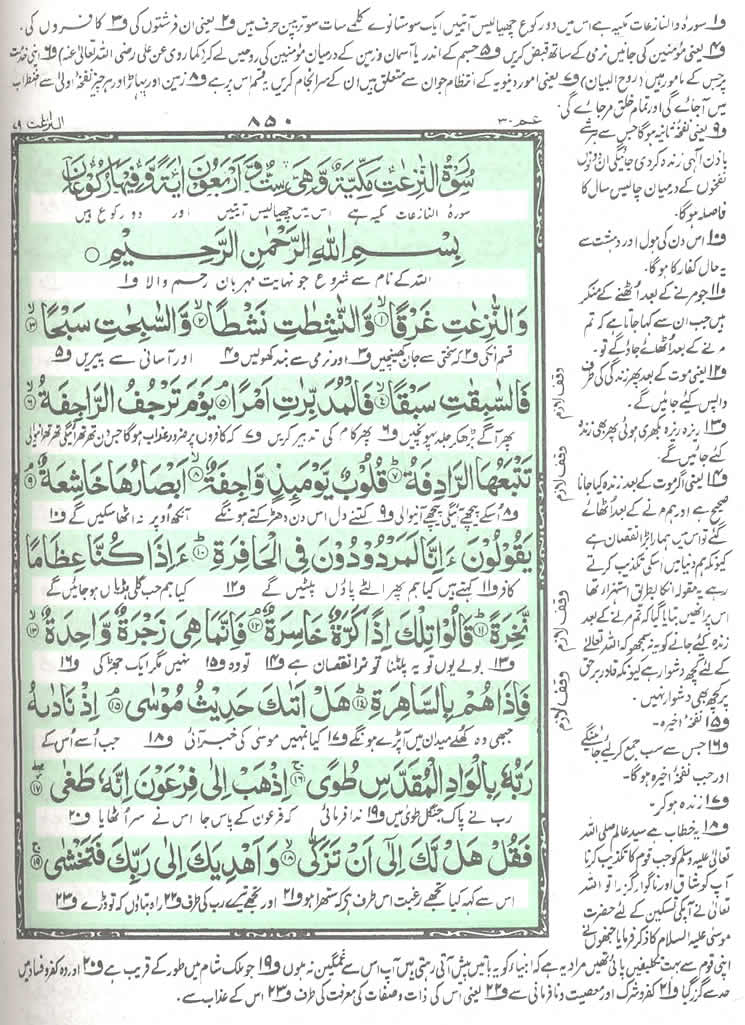 ف۱ سورہ والنازعات مکیہ ہے اس میں دو رکوع چھیالیس آیتیں ایک سو ستانوے کلمے سات سو ترپن حرف ہیں ف۲ یعنی ان فرشتوں کی ف۳ کافروں کی۔
ف۴ یعنی مؤمنین کی جانیں نرمی کے ساتھ قبض کریں ف۵ جسم کے اندر یا آسمان و زمین کے درمیان مؤمنین کی روحیں لے کر (کما روی عن علی رضی اللہ تعالیٰ عنہ) ف۶ اپنی خدمت
پر جس کے مامور ہیں (روح البیان) ف۷ یعنی امور دنیویہ کے انتظام جو ان سے متعلق ہیں ان کے سرانجام کریں یہ قسم اس پر ہے ف۸ زمین اور پہاڑ اور ہر چیز نفخۂ اولیٰ سے اضطراب
میں آجائے گی اور تمام خلق مرجائے گی۔
عم ۳۰
۸۵۰
النزعت ۷۹
سُوْرَةُ النّٰزِعٰتِ مَكِّيَّةٌ وَّهِيَ سِتٌّ وَّاَرْبَعُوْنَ اٰيَةً وَّفِيْهَا رُكُوْعَانِ
سورہ النازعات مکیہ ہے اس میں چھیالیس آیتیں اور دو رکوع ہیں
بِسْمِ اللهِ الرَّحْمٰنِ الرَّحِيْمِ
اللہ کے نام سے شروع جو نہایت مہربان رحم والا ف۱
وَالنّٰزِعٰتِ غَرْقًا ۱ وَّالنّٰشِطٰتِ نَشْطًا ۲ وَّالسّٰبِحٰتِ سَبْحًا ۳
قسم انکی ف۲ کہ سختی سے جان کھینچیں ف۳ اور نرمی سے بند کھولیں ف۴ اور آسانی سے پیریں ف۵
فَالسّٰبِقٰتِ سَبْقًا ۴ فَالْمُدَبِّرٰتِ اَمْرًا ۵ يَوْمَ تَرْجُفُ الرَّاجِفَةُ ۶
پھر آگے بڑھ کر جلد پہونچیں ف۶ پھر کام کی تدبیر کریں ف۷ کہ کافروں پر ضرور عذاب ہوگا جس دن تھرتھرائیگی تھرتھرانیوالی
تَتْبَعُهَا الرَّادِفَةُ ۷ قُلُوْبٌ يَّوْمَئِذٍ وَّاجِفَةٌ ۸ اَبْصَارُهَا خَاشِعَةٌ ۹
ف۸ اُسکے پیچھے آئیگی پیچھے آنیوالی ف۹ کتنے دل اس دن دھڑکتے ہونگے آنکھ اُوپر نہ اٹھا سکیں گے ف۱۰
يَقُوْلُوْنَ ءَاِنَّا لَمَرْدُوْدُوْنَ فِى الْحَافِرَةِ ۱۰ ءَاِذَا كُنَّا عِظَامًا
کافر ف۱۱ کہتے ہیں کیا ہم پھر الٹے پاؤں پلٹیں گے ف۱۲ کیا ہم جب گلی ہڈیاں ہوجائیں گے
نَّخِرَةً ۱۱ قَالُوْا تِلْكَ اِذًا كَرَّةٌ خَاسِرَةٌ ۱۲ فَاِنَّمَا هِيَ زَجْرَةٌ وَّاحِدَةٌ ۱۳
ف۱۳ بولے یوں تو یہ پلٹنا تو نرا نقصان ہے ف۱۴ تو وہ ف۱۵ نہیں مگر ایک جھڑکی ف۱۶
فَاِذَا هُمْ بِالسَّاهِرَةِ ۱۴ هَلْ اَتٰىكَ حَدِيْثُ مُوْسٰى ۱۵ اِذْ نَادٰىهُ
جبھی وہ کھلے میدان میں آپڑے ہونگے ف۱۷ کیا تمہیں موسیٰ کی خبر آئی ف۱۸ جب اُسے اُس کے
رَبُّهٗ بِالْوَادِ الْمُقَدَّسِ طُوًى ۱۶ اِذْهَبْ اِلٰى فِرْعَوْنَ اِنَّهٗ طَغٰى ۱۷
رب نے پاک جنگل طویٰ میں ف۱۹ ندا فرمائی کہ فرعون کے پاس جا اس نے سر اُٹھایا ف۲۰
فَقُلْ هَلْ لَّكَ اِلٰى اَنْ تَزَكّٰى ۱۸ وَاَهْدِيَكَ اِلٰى رَبِّكَ فَتَخْشٰى ۱۹
اس سے کہہ کیا تجھے رغبت اس طرف ہے کہ ستھرا ہو ف۲۱ اور تجھے تیرے رب کی طرف ف۲۲ راہ بتاؤں کہ تو ڈرے ف۲۳
وقف لازم
وقف لازم
وقف لازم
وقف لازم
ف۹ یعنی نفخۂ ثانیہ ہوگا جس سے ہر شے
باذن الٰہی زندہ کردی جائیگی ان دونوں
نفخوں کے درمیان چالیس سال کا
فاصلہ ہوگا۔
ف۱۰ اس دن کی ہول اور دہشت سے
یہ حال کفار کا ہوگا۔
ف۱۱ جو مرنے کے بعد اُٹھنے کے منکر
ہیں جب ان سے کہا جاتا ہے کہ تم
مرنے کے بعد اُٹھائے جاؤگے تو۔
ف۱۲ یعنی موت کے بعد پھر زندگی کی طرف
واپس کئے جائیں گے۔
ف۱۳ ریزہ ریزہ بکھری ہوئی پھر بھی زندہ
کئے جائیں گے۔
ف۱۴ یعنی اگر موت کے بعد زندہ کیا جانا
صحیح ہے اور ہم مرنے کے بعد اُٹھائے
گئے تو اس میں ہمارا بڑا نقصان ہے
کیونکہ ہم دنیا میں اسکی تکذیب کرتے
رہے یہ مقولہ انکا بطریق استہزاء تھا
اس پر انھیں بتایا گیا کہ تم مرنے کے بعد
زندہ کئے جانے کو یہ نہ سمجھو کہ اللہ تعالیٰ
کے لئے کچھ دشوار ہے کیونکہ قادر برحق
پر کچھ بھی دشوار نہیں۔
ف۱۵ نفخۂ اخیرہ۔
ف۱۶ جس سے سب جمع کرلئے جائینگے
اور جب نفخۂ اخیرہ ہوگا۔
ف۱۷ زندہ ہوکر۔
ف۱۸ یہ خطاب ہے سید عالم صلی اللہ
تعالیٰ علیہ وسلم کو جب قوم کا تکذیب کرنا
آپ کو شاق اور ناگوار گزرا تو اللہ
تعالیٰ نے آپکی تسکین کے لئے حضرت
موسیٰ علیہ السلام کا ذکر فرمایا جنھوں نے
اپنی قوم سے بہت تکلیفیں پائی تھیں مراد یہ ہے کہ انبیاء کو یہ باتیں پیش آتی رہتی ہیں آپ اس سے غمگین نہ ہوں ف۱۹ جو ملک شام میں طور کے قریب ہے ف۲۰ اور وہ کفر و فساد میں
حد سے گزر گیا ف۲۱ کفر و شرک اور معصیت و نافرمانی سے ف۲۲ یعنی اس کی ذات و صفات کی معرفت کی طرف ف۲۳ اس کے عذاب سے۔